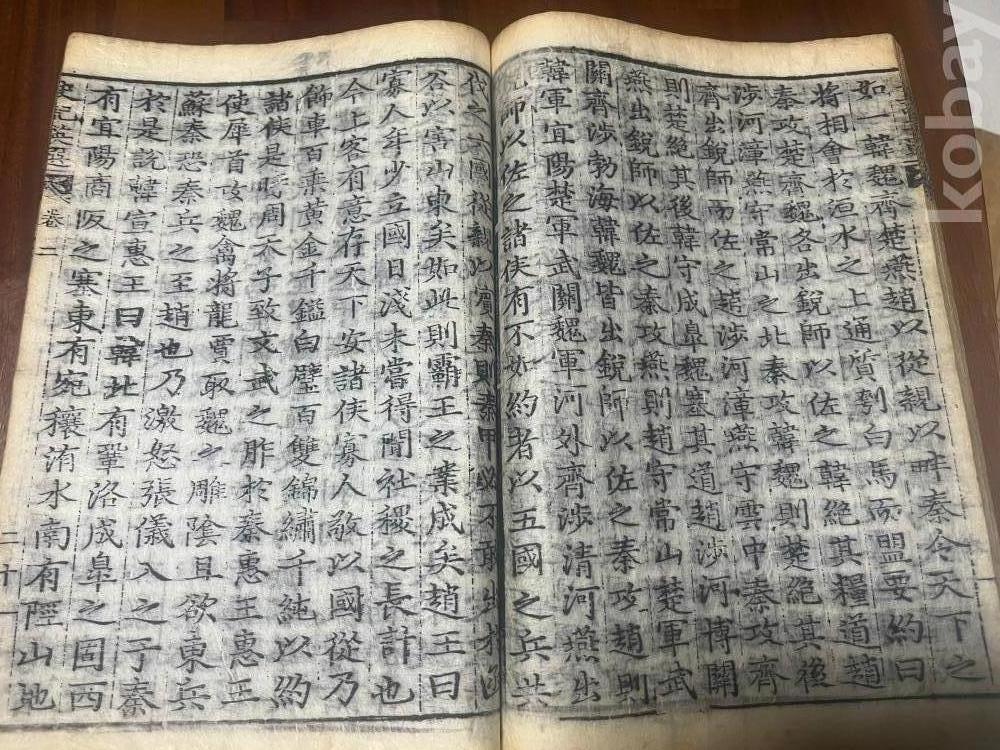 如一韓魏齊楚燕趙以從親以畔秦令天下之
將相會於洹水之上通質刳白馬而盟要約曰
秦攻楚齊魏各出銳師以佐之韓絕其糧道趙
涉河漳燕守常山之北秦攻韓魏則楚絕其後
齊出銳師而佐之趙涉河漳燕守雲中秦攻齊
則楚絕其後韓守成皐魏塞其道趙涉河博關
燕出銳師以佐之秦攻燕則趙守常山楚軍武
關齊涉勃海韓魏皆出銳師以佐之秦攻趙則
韓軍宜陽楚軍武關魏軍河外齊涉清河燕出
師以佐之諸侯有不如約者以五國之兵共
伐之六國從親以賓秦則秦甲必不敢出於函
谷以害山東矣如此則霸王之業成矣趙王曰
寡人年少立國日淺未嘗得聞社稷之長計也
今上客有意存天下安諸侯寡人敬以國從乃
飾車百乘黃金千鎰白璧百雙錦繡千純以約
諸侯是時周天子致文武之胙於秦惠王惠王
使犀首攻魏禽將龍賈取魏之雕陰且欲東兵
蘇秦恐秦兵之至趙也乃激怒張儀入之于秦
於是說韓宣惠王曰韓北有鞏洛成皐之固西
有宜陽商阪之塞東有宛穰洧水南有陘山地
史記英選 卷二 二十一
kobay